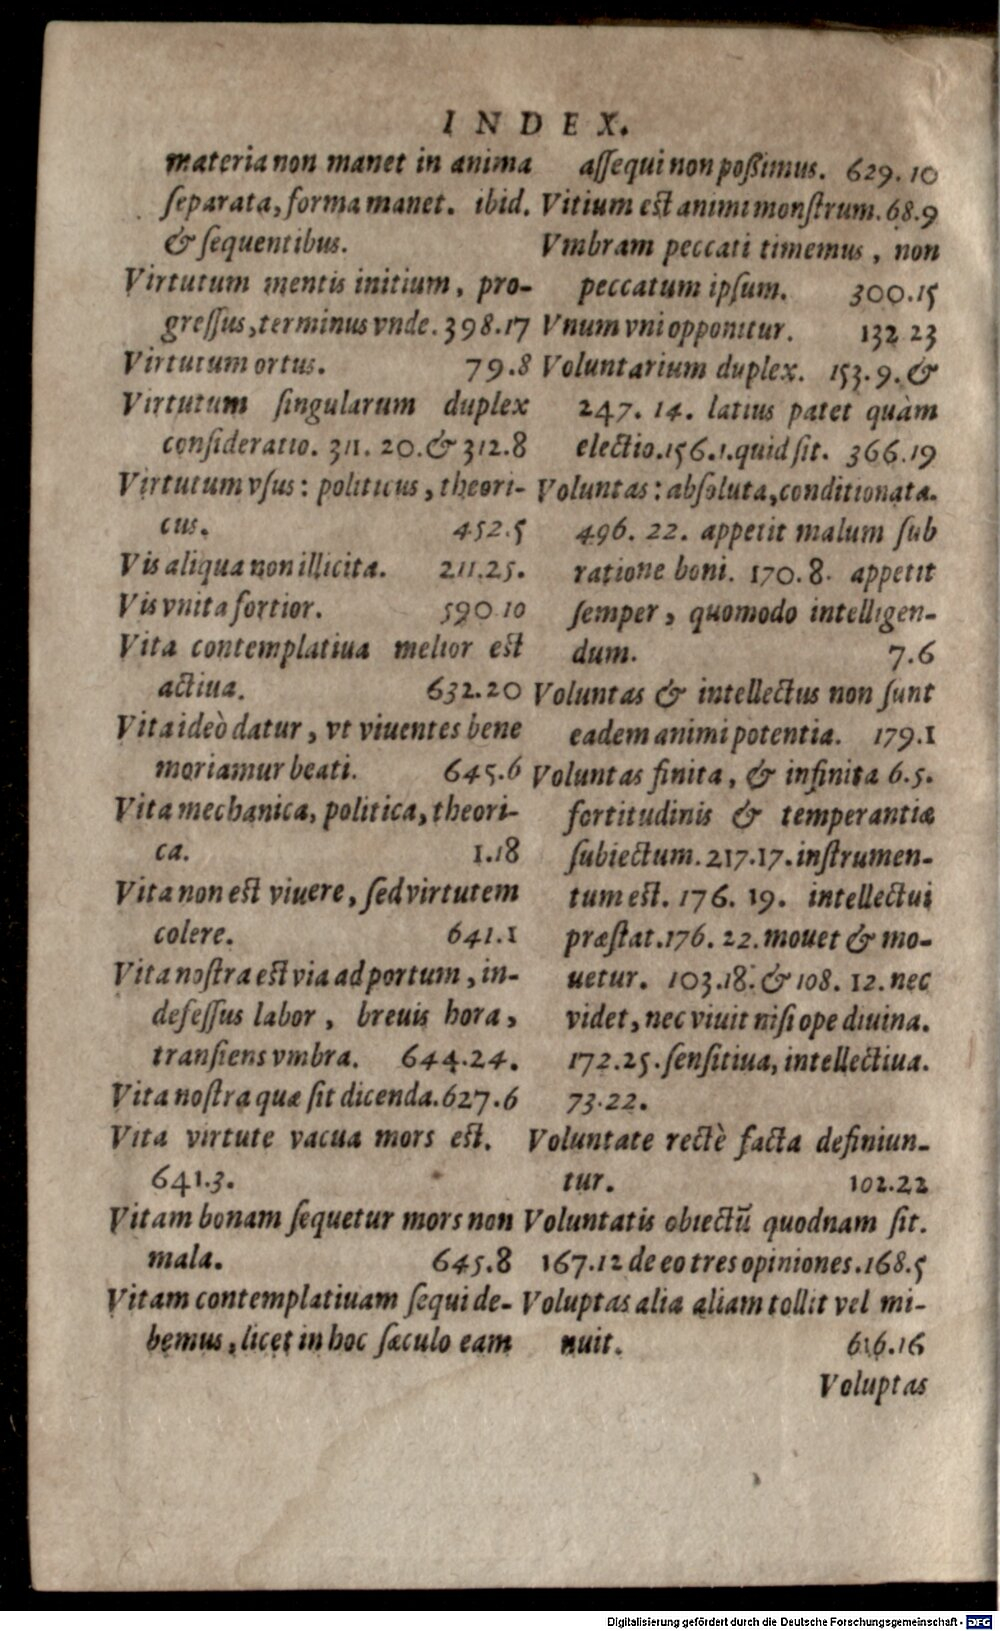 INDEX.
materia non manet in anima
ſeparata, forma manet. ibid.
& ſequentibus.
Virtutum mentis initium, pro-
greſſus, terminus vnde. 398.17
Virtutum ortus. 79.8
Virtutum ſingularum duplex
conſideratio. 311. 20. & 312.8
Virtutum vſus: politicus, theori-
cus. 452.5
Vis aliqua non illicita. 211.25.
Vis vnita fortior. 590 10
Vita contemplatiua melior eſt
actiua. 632.20
Vita ideò datur, vt viuentes bene
moriamur beati. 645.6
Vita mechanica, politica, theori-
ca. 1.18
Vita non eſt viuere, ſed virtutem
colere. 641.1
Vita noſtra eſt via ad portum, in-
defeſſus labor, breuis hora,
tranſiens vmbra. 644.24.
Vita noſtra quæ ſit dicenda. 627.6
Vita virtute vacua mors eſt.
641.3.
Vitam bonam ſequetur mors non
mala. 645.8
Vitam contemplatiuam ſequi de-
bemus, licet in hoc ſæculo eam
aſſequi non poßimus. 629.10
Vitium eſt animi monſtrum. 68.9
Vmbram peccati timemus, non
peccatum ipſum. 300.15
Vnum vni opponitur. 132 23
Voluntarium duplex. 153.9. &
247. 14. latius patet quàm
electio. 156.1. quid ſit. 366.19
Voluntas: abſoluta, conditionata.
496. 22. appetit malum ſub
ratione boni. 170.8. appetit
ſemper, quomodo intelligen-
dum. 7.6
Voluntas & intellectus non ſunt
eadem animi potentia. 179.1
Voluntas finita, & infinita 6.5.
fortitudinis & temperantiæ
ſubiectum. 217.17. inſtrumen-
tum eſt. 176. 19. intellectui
præſtat. 176. 22. mouet & mo-
uetur. 103.18. & 108. 12. nec
videt, nec viuit niſi ope diuina.
172.25. ſenſitiua, intellectiua.
73.22.
Voluntate rectè facta definiun-
tur. 102.22
Voluntatis obiectū quodnam ſit.
167.12 de eo tres opiniones. 168.5
Voluptas alia aliam tollit vel mi-
nuit. 616.16
Voluptas
Digitalisierung gefördert durch die Deutsche Forschungsgemeinschaft - DFG